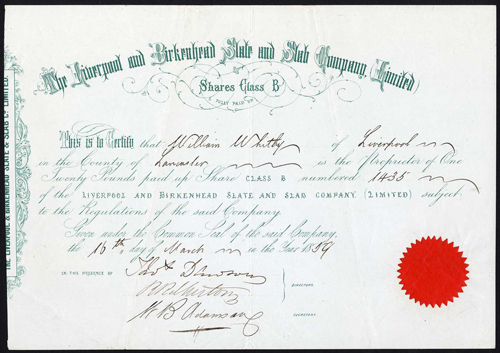 The Liverpool and Birkenhead Slate and Slab Company, Limited
Shares Class B
FULLY PAID UP
THE LIVERPOOL & BIRKENHEAD SLATE & SLAB Co. LIMITED.
This is to Certify that William Whitby of Liverpool
in the County of Lancaster is the Proprietor of One
Twenty Pounds paid up Share CLASS B numbered 1435
of the LIVERPOOL AND BIRKENHEAD SLATE AND SLAB COMPANY (LIMITED) subject
to the Regulations of the said Company.
Given under the Common Seal of the said Company,
the 16th day of March in the Year 1859
IN THE PRESENCE OF Thos Dawson
DIRECTORS.
W B Adamson
SECRETARY.